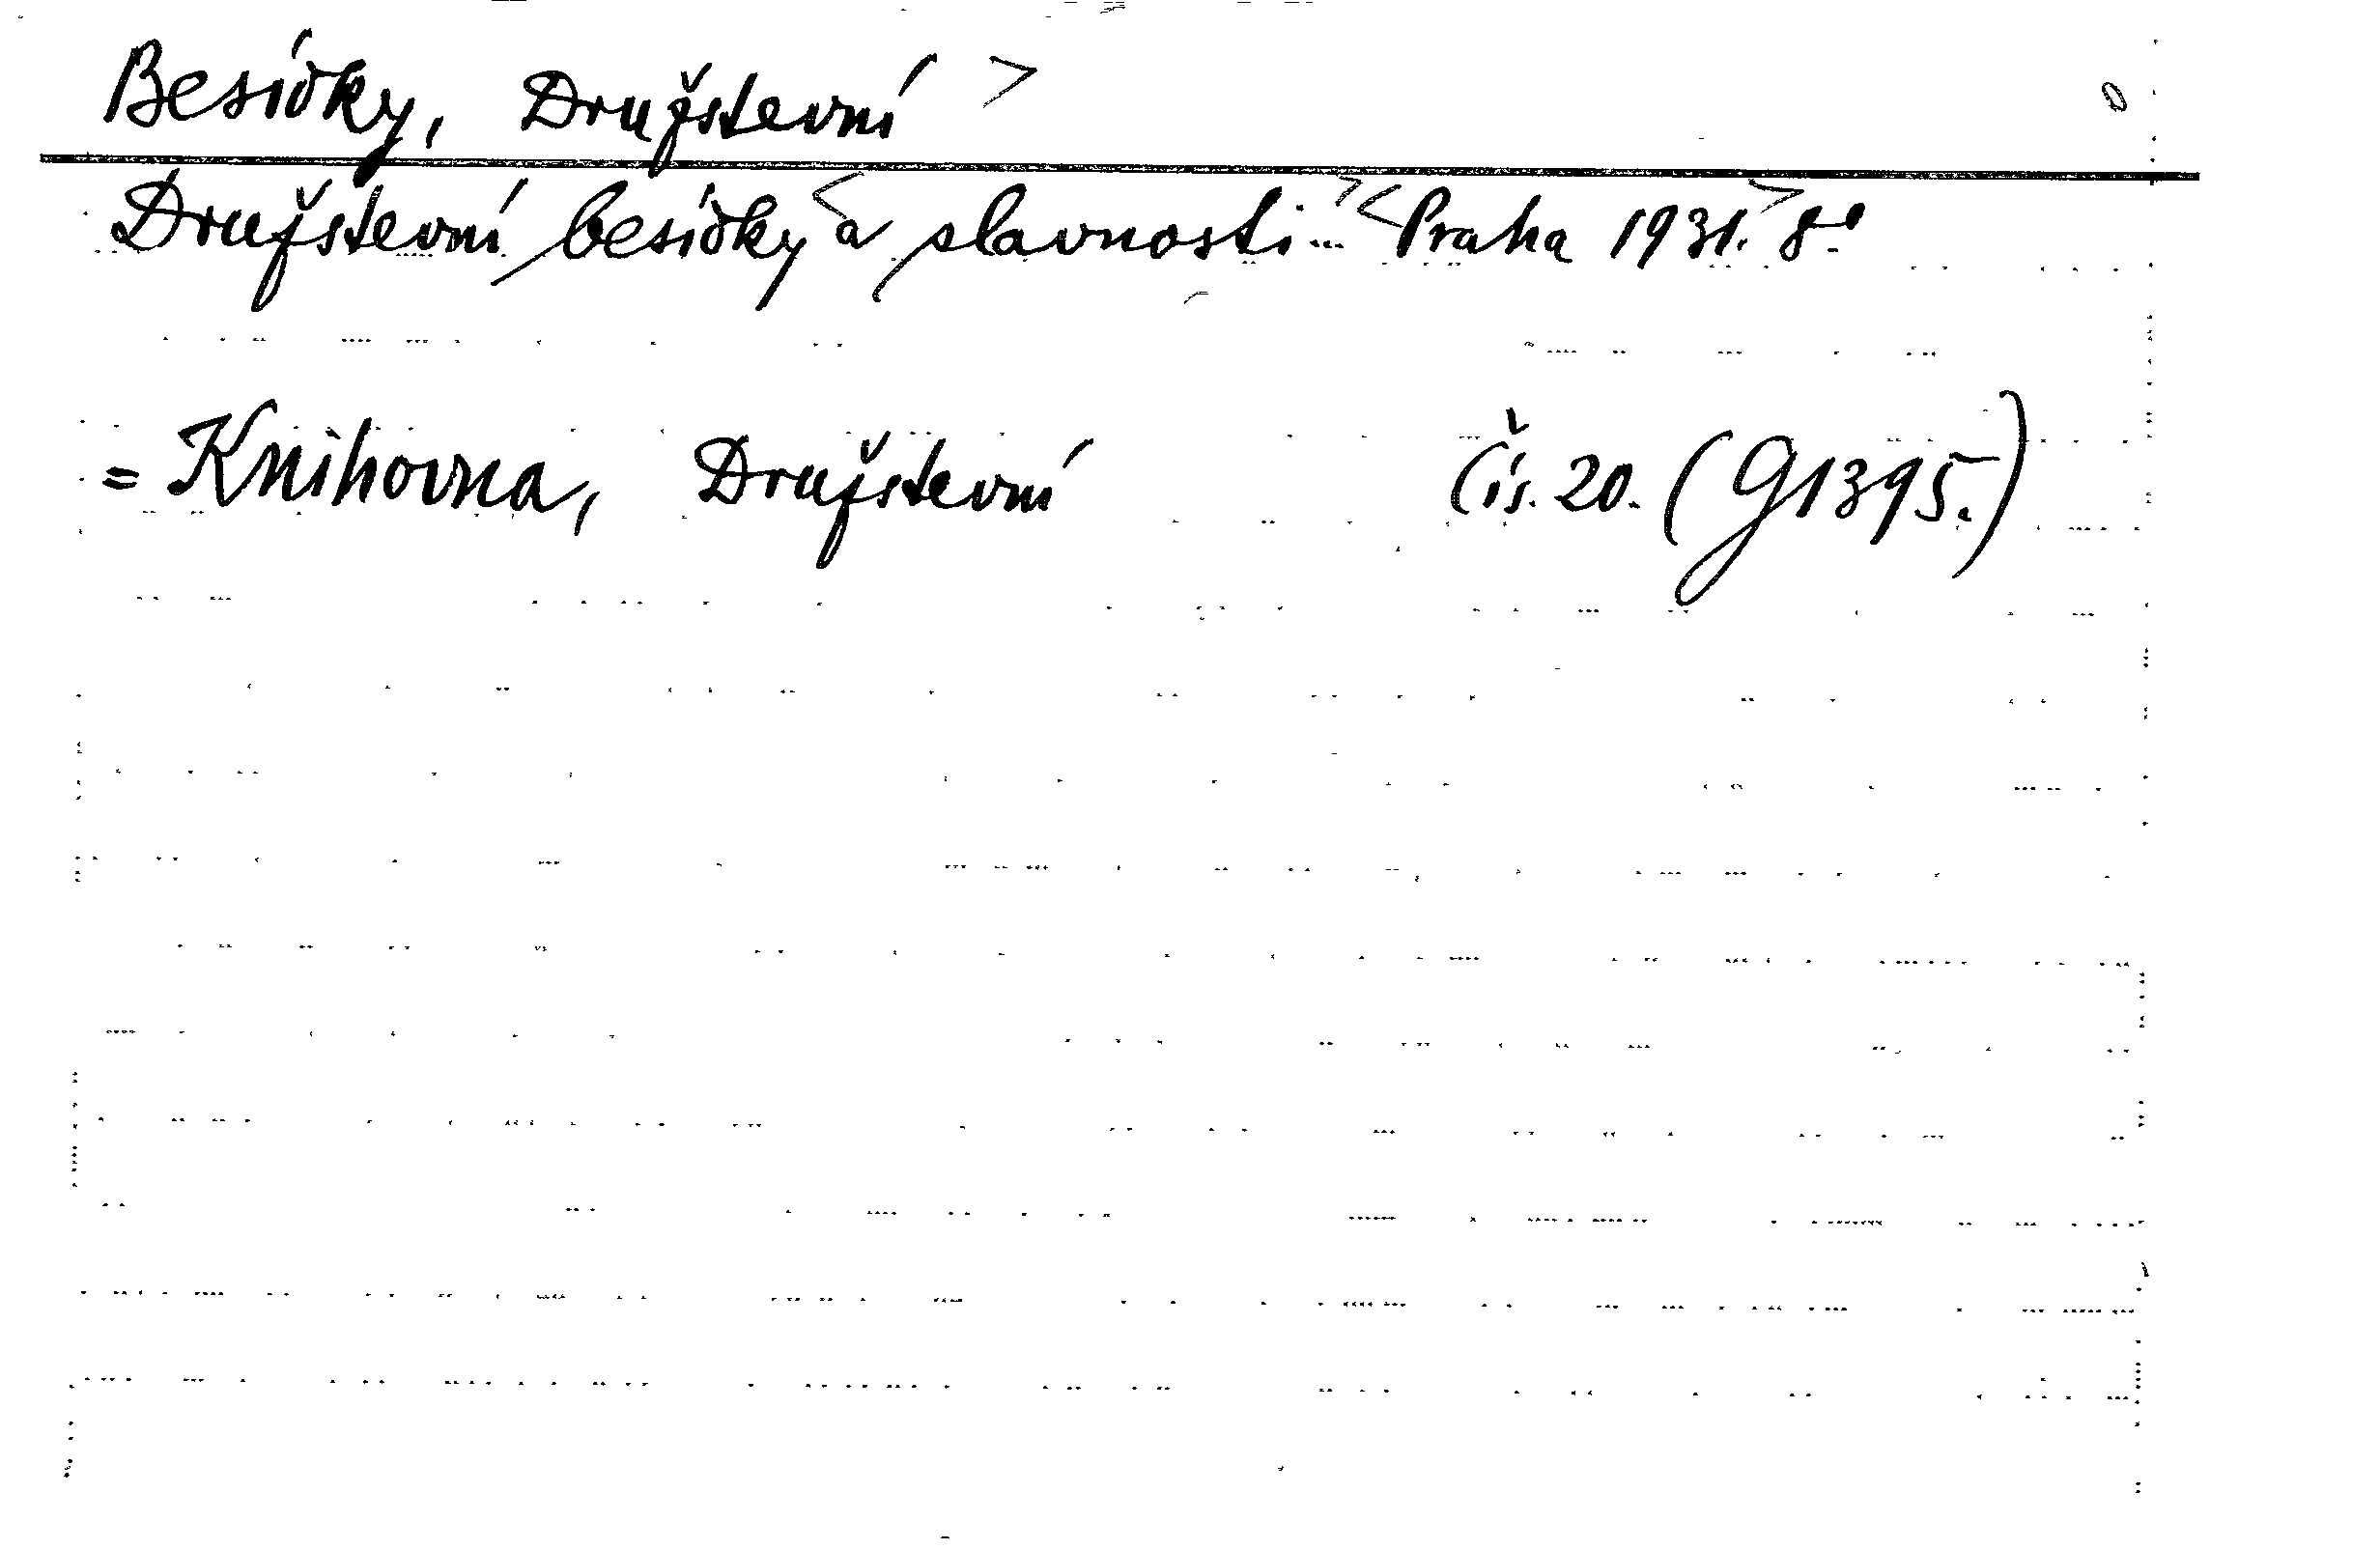 Besídky, Družstevní >
Družstevní besídky < a slavnosti... > < Praha 1931. > 8°
= Knihovna, Družstevní čís. 20. (G1395.)